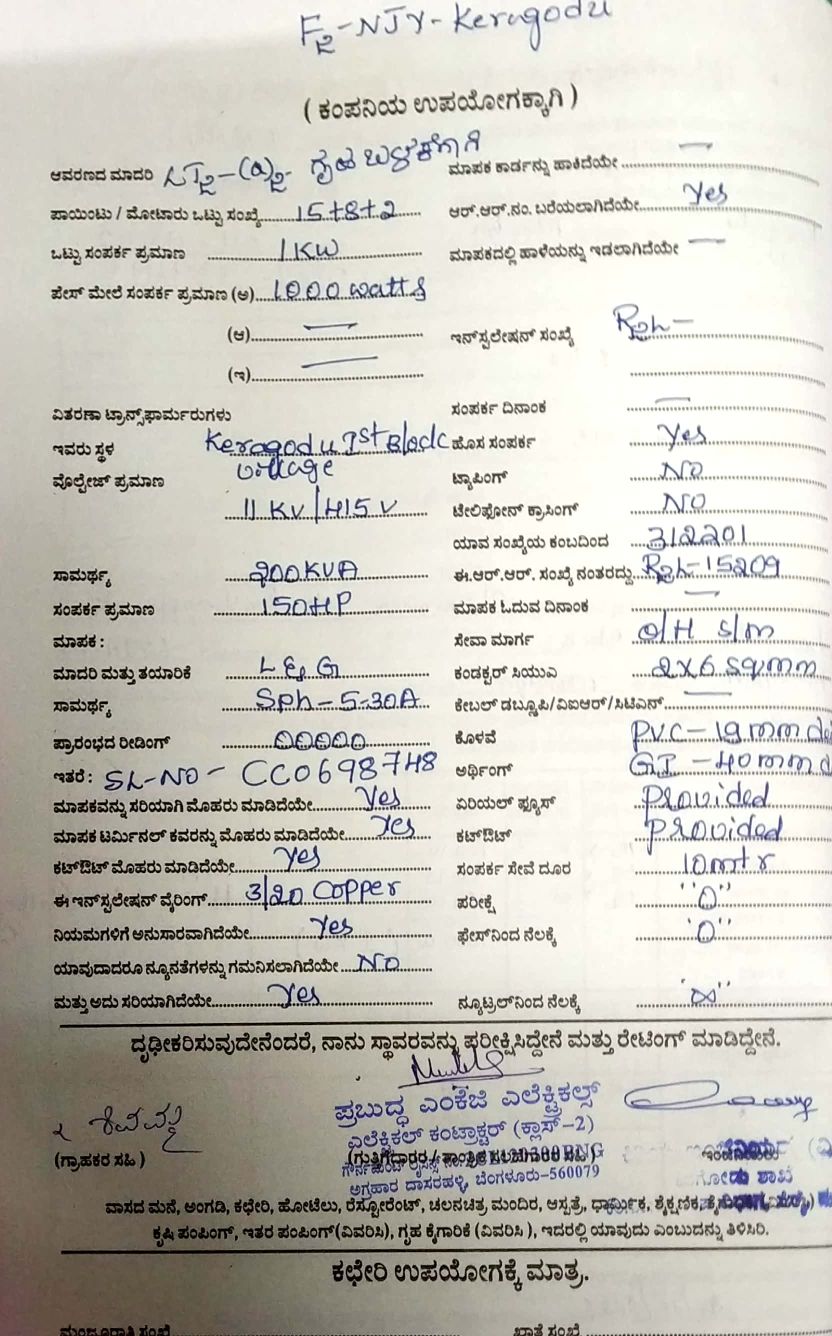 F2-NJY-Keragodu
( ಕಂಪನಿಯ ಉಪಯೋಗಕ್ಕಾಗಿ )
ಆವರಣದ ಮಾದರಿ LT2-(a)2- ಗೃಹ ಬಳಕೆಗಾಗಿ
ಮಾಪಕ ಕಾರ್ಡನ್ನು ಹಾಕಿದೆಯೇ —
ಪಾಯಿಂಟು / ಮೋಟಾರು ಒಟ್ಟು ಸಂಖ್ಯೆ 15+8+2
ಆರ್.ಆರ್.ನಂ. ಬರೆಯಲಾಗಿದೆಯೇ Yes
ಒಟ್ಟು ಸಂಪರ್ಕ ಪ್ರಮಾಣ 1KW
ಮಾಪಕದಲ್ಲಿ ಹಾಳೆಯನ್ನು ಇಡಲಾಗಿದೆಯೇ —
ಪೇಸ್ ಮೇಲೆ ಸಂಪರ್ಕ ಪ್ರಮಾಣ (ಅ) 1000 watts
(ಆ) —
ಇನ್‌ಸ್ಟಲೇಷನ್ ಸಂಖ್ಯೆ
(ಇ) —
ವಿತರಣಾ ಟ್ರಾನ್ಸ್‌ಫಾರ್ಮರುಗಳು
ಸಂಪರ್ಕ ದಿನಾಂಕ —
ಇವರು ಸ್ಥಳ Keragodu Ist Block
village
ಹೊಸ ಸಂಪರ್ಕ Yes
ವೊಲ್ಟೇಜ್ ಪ್ರಮಾಣ
ಟ್ಯಾಪಿಂಗ್ NO
11 KV/415 V
ಟೇಲಿಫೋನ್ ಕ್ರಾಸಿಂಗ್ NO
ಯಾವ ಸಂಖ್ಯೆಯ ಕಂಬದಿಂದ 312201
ಸಾಮರ್ಥ್ಯ 200KVA
ಈ.ಆರ್.ಆರ್. ಸಂಖ್ಯೆ ನಂತರದ್ದು 15209
ಸಂಪರ್ಕ ಪ್ರಮಾಣ 150HP
ಮಾಪಕ ಓದುವ ದಿನಾಂಕ —
ಮಾಪಕ :
ಸೇವಾ ಮಾರ್ಗ O/H S/m
ಮಾದರಿ ಮತ್ತು ತಯಾರಿಕೆ L & G
ಕಂಡಕ್ಟರ್ ಸಿಯುಎ 2X6 sqmm
ಸಾಮರ್ಥ್ಯ Sph-5-30A
ಕೇಬಲ್ ಡಬ್ಲೂಪಿ/ವಿಐಆರ್/ಸಿಟಿಎಸ್ —
ಪ್ರಾರಂಭದ ರೀಡಿಂಗ್ 00000
ಕೊಳವೆ PVC-19mm
ಇತರೆ : SL-NO- CC0698748
ಅರ್ಥಿಂಗ್ GI-40mm
ಮಾಪಕವನ್ನು ಸರಿಯಾಗಿ ಮೊಹರು ಮಾಡಿದೆಯೇ Yes
ಏರಿಯಲ್ ಫ್ಯೂಸ್ Provided
ಮಾಪಕ ಟರ್ಮಿನಲ್ ಕವರನ್ನು ಮೊಹರು ಮಾಡಿದೆಯೇ Yes
ಕಟ್‌ಔಟ್ Provided
ಕಟ್‌ಔಟ್ ಮೊಹರು ಮಾಡಿದೆಯೇ Yes
ಸಂಪರ್ಕ ಸೇವೆ ದೂರ 10mtr
ಈ ಇನ್‌ಸ್ಟಲೇಷನ್ ವೈರಿಂಗ್ 3/20 Copper
ಪರೀಕ್ಷೆ "0"
ನಿಯಮಗಳಿಗೆ ಅನುಸಾರವಾಗಿದೆಯೇ Yes
ಫೇಸ್‌ನಿಂದ ನೆಲಕ್ಕೆ "0"
ಯಾವುದಾದರೂ ನ್ಯೂನತೆಗಳನ್ನು ಗಮನಿಸಲಾಗಿದೆಯೇ No
ಮತ್ತು ಅದು ಸರಿಯಾಗಿದೆಯೇ Yes
ನ್ಯೂಟ್ರಲ್‌ನಿಂದ ನೆಲಕ್ಕೆ "∞"
ದೃಢೀಕರಿಸುವುದೇನೆಂದರೆ, ನಾನು ಸ್ಥಾವರವನ್ನು ಪರೀಕ್ಷಿಸಿದ್ದೇನೆ ಮತ್ತು ರೇಟಿಂಗ್ ಮಾಡಿದ್ದೇನೆ.
ಪ್ರಬುದ್ಧ ಎಂಕೆಜಿ ಎಲೆಕ್ಟ್ರಿಕಲ್ಸ್
ಎಲೆಕ್ಟ್ರಿಕಲ್ ಕಂಟ್ರಾಕ್ಟರ್ (ಕ್ಲಾಸ್-2)
(ಗ್ರಾಹಕರ ಸಹಿ )
(ಗುತ್ತಿಗೆದಾರರ / ತಾಂತ್ರಿಕ ಸಹಿ )
ಅಗ್ರಹಾರ ದಾಸರಹಳ್ಳಿ, ಬೆಂಗಳೂರು-560079
ವಾಸದ ಮನೆ, ಅಂಗಡಿ, ಕಛೇರಿ, ಹೋಟೆಲು, ರೆಸ್ಟೋರೆಂಟ್, ಚಲನಚಿತ್ರ ಮಂದಿರ, ಆಸ್ಪತ್ರೆ, ಧಾರ್ಮಿಕ, ಶೈಕ್ಷಣಿಕ,
ಕೃಷಿ ಪಂಪಿಂಗ್, ಇತರ ಪಂಪಿಂಗ್(ವಿವರಿಸಿ), ಗೃಹ ಕೈಗಾರಿಕೆ (ವಿವರಿಸಿ ), ಇದರಲ್ಲಿ ಯಾವುದು ಎಂಬುದನ್ನು ತಿಳಿಸಿರಿ.
ಕಛೇರಿ ಉಪಯೋಗಕ್ಕೆ ಮಾತ್ರ.